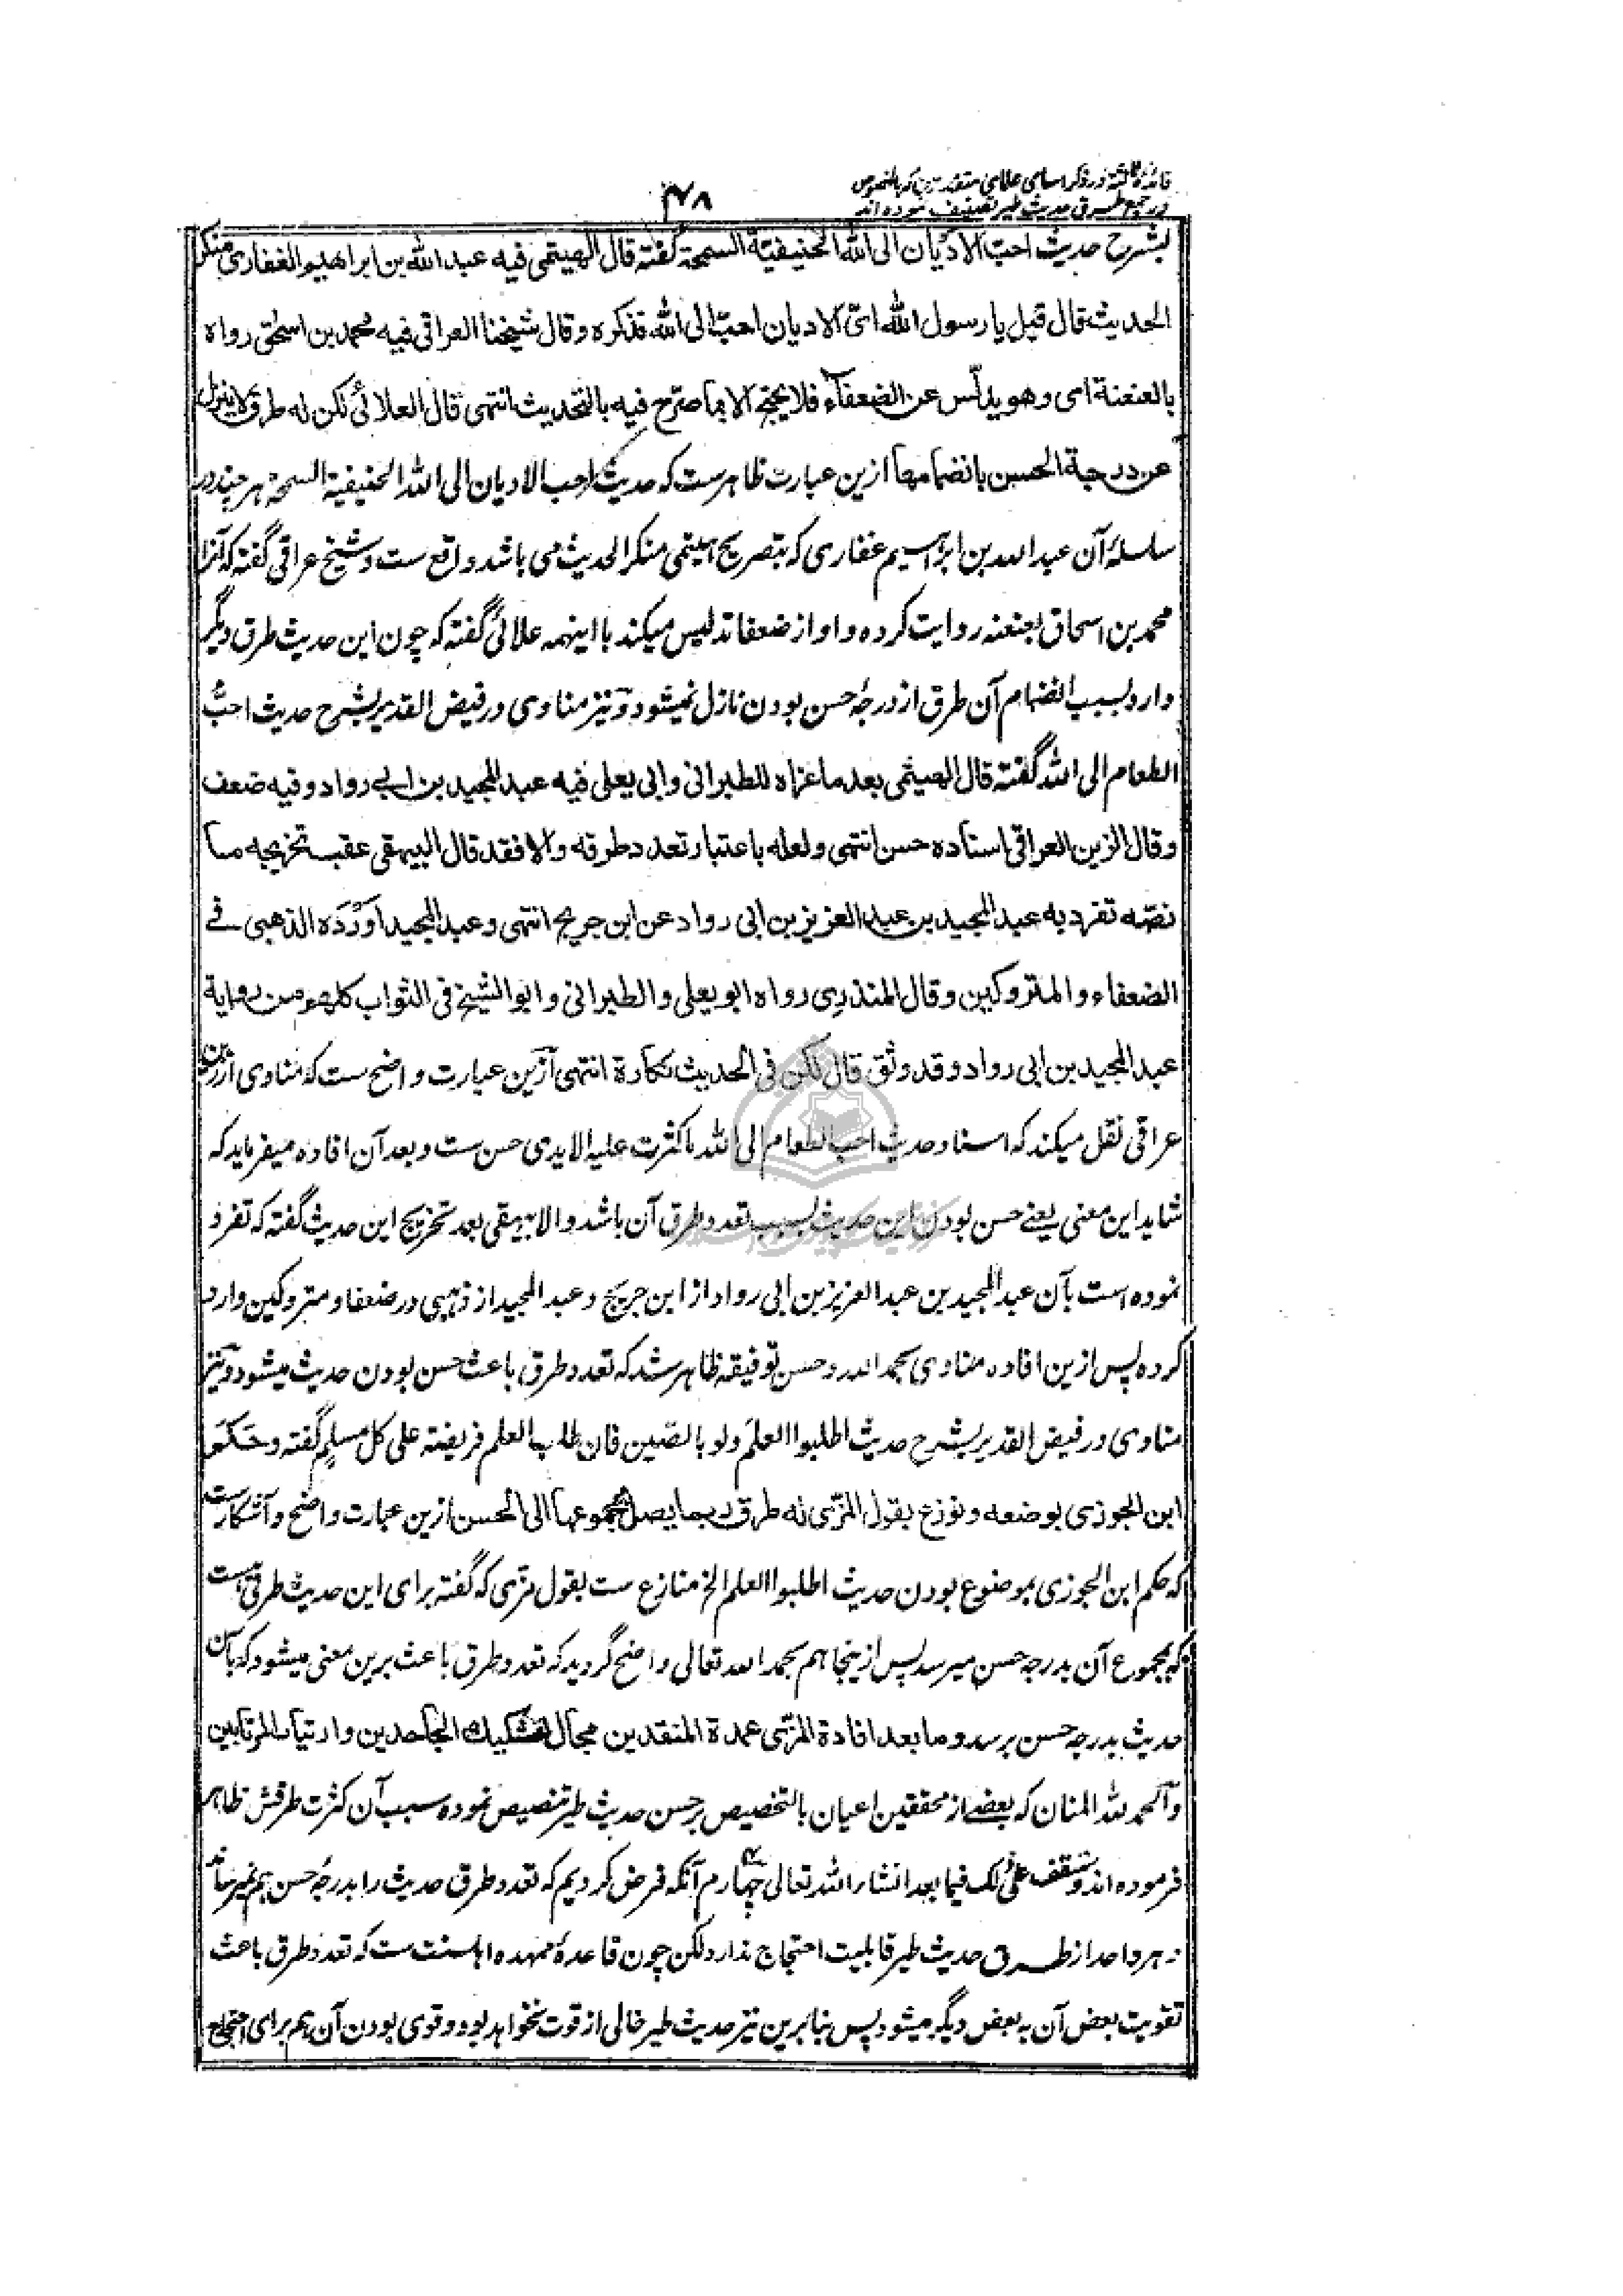 فائده ثالثه در ذکر اسامی علمای متقدمین که بالخصوص
در جمع طرق حدیث طیر تصنیف نموده اند
۴۸
بشرح حدیث احبّ الادیان الی الله الحنیفیّة السمحة گفته قال الهیتمی فیه عبد الله بن ابراهیم الغفاری منکر
الحدیث قال قیل یا رسول الله ایّ الادیان احبّ الی الله فذکره وقال شیخنا العراقی فیه محمد بن اسحٰق رواه
بالعنعنة ای وهو یدلّس عن الضعفآء فلا یحتج الا بما صرّح فیه بالتحدیث انتهی قال العلائی لکن له طرق لا ینزل
عن درجة الحسن بانضمامها ازین عبارت ظاهرست که حدیث احب الادیان الی الله الحنیفیة السمحة هر چند در
سلسلۀ آن عبد الله بن ابراهیم غفاری که بتصریح هیتمی منکر الحدیث می باشد واقع ست و شیخ عراقی گفته که آنرا
محمد بن اسحاق بعنعنه روایت کرده و او از ضعفا تدلیس میکند با اینهمه علائی گفته که چون این حدیث طرق دیگر
دارد بسبب انضمام آن طرق از درجۀ حسن بودن نازل نمیشود و نیز مناوی در فیض القدیر بشرح حدیث احبُّ
الطعام الی الله گفته قال الهیثمی بعد ما عزاه للطبرانی وابی یعلی فیه عبد المجید بن ابی رواد وفیه ضعف
وقال الزین العراقی اسناده حسن انتهی ولعله باعتبار تعدد طرقه والا فقد قال البیهقی عقب تخریجه ما
نصّه تفرد به عبد المجید بن عبد العزیز بن ابی رواد عن ابن جریج انتهی وعبد المجید اَوْرَدَه الذهبی فی
الضعفاء والمتروکین وقال المنذری رواه ابو یعلی والطبرانی وابو الشیخ فی الثواب کلهم من روایة
عبد المجید بن ابی رواد وقد وثق قال لکن فی الحدیث نکارة انتهی ازین عبارت واضح ست که مناوی از زین
عراقی نقل میکند که اسناد حدیث احب الطعام الی الله ما کثرت علیه الایدی حسن ست و بعد آن افاده میفرماید که
شاید این معنی یعنے حسن بودن این حدیث بسبب تعدد طرق آن باشد والا بیهقی بعد تخریج این حدیث گفته که تفرد
نموده است بآن عبد المجید بن عبد العزیز بن ابی رواد از ابن جریج و عبد المجید از ذهبی در ضعفا و متروکین وارد
کرده پس ازین افاده مناوی بحمد الله و حسن توفیقه ظاهر شد که تعدد طرق باعث حسن بودن حدیث میشود و نیز
مناوی در فیض القدیر بشرح حدیث اطلبوا العلمَ ولو بالصّین فان طلب العلم فریضة علی کل مسلم گفته وحَکَمَ
ابن الجوزی بوضعه ونوزع بقول المزّی له طرق ربما یصل بمجموعها الی الحسن ازین عبارت واضح و آشکارست
که حکم ابن الجوزی بموضوع بودن حدیث اطلبوا العلم الخ منازع ست بقول مزّی که گفته برای این حدیث طرقی ست
که بمجموع آن بدرجه حسن میرسد پس از ینجا هم بحمد الله تعالی واضح گردید که تعدد طرق باعث برین معنی میشود که بآن
حدیث بدرجه حسن برسد وما بعد افادة المزّی عمدة المنقدین مجال لتشکیك الجاحدین وارتیاب المرتابین
و آلحمد لله المنان که بعضے از محققین اعیان بالتخصیص بر حسن حدیث طیر تنصیص نموده سبب آن کثرت طرقش ظاهر
فرموده اند وستقف علی ذلک فیما بعد انشاء الله تعالی چهارم آنکه فرض کردیم که تعدد طرق حدیث را بدرجۀ حسن هم نمیرساند
و هر واحد از طرق حدیث طیر قابلیت احتجاج ندارد لکن چون قاعدۀ ممهده اهلسنت ست که تعدد طرق باعث
تقویت بعض آن ببعض دیگر میشود پس بنابرین نیز حدیث طیر خالی از قوت نخواهد بود و قوی بودن آن هم برای احتجاج